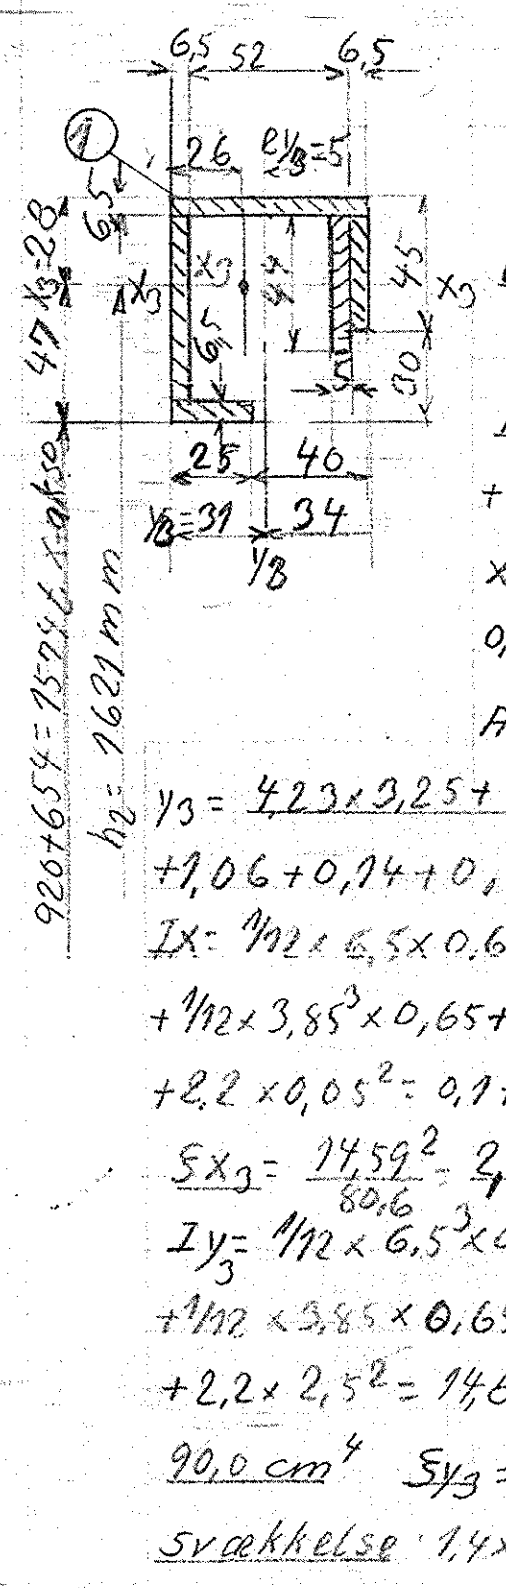 6,5 52 6,5
1
26 ey3=5
6,5
47 X3=28
X3 X3 44 45 X3
6,5
30
25 40
y3=31 34
y3
h2= 1621 mm
+
x
0,
A
y3= 4,23×3,25+
+1,06+0,14+0,
Ix= 1/12× 6,5×0,6
+1/12×3,85³×0,65+
+2,2×0,05²= 0,1+
Sx3= 14,59²/80,6 = 2,
Iy3= 1/12×6,5³×0
+1/12×3,85×0,65
+2,2×2,5²= 14,6
90,0 cm⁴ Sy3=
Svækkelse 1,4×